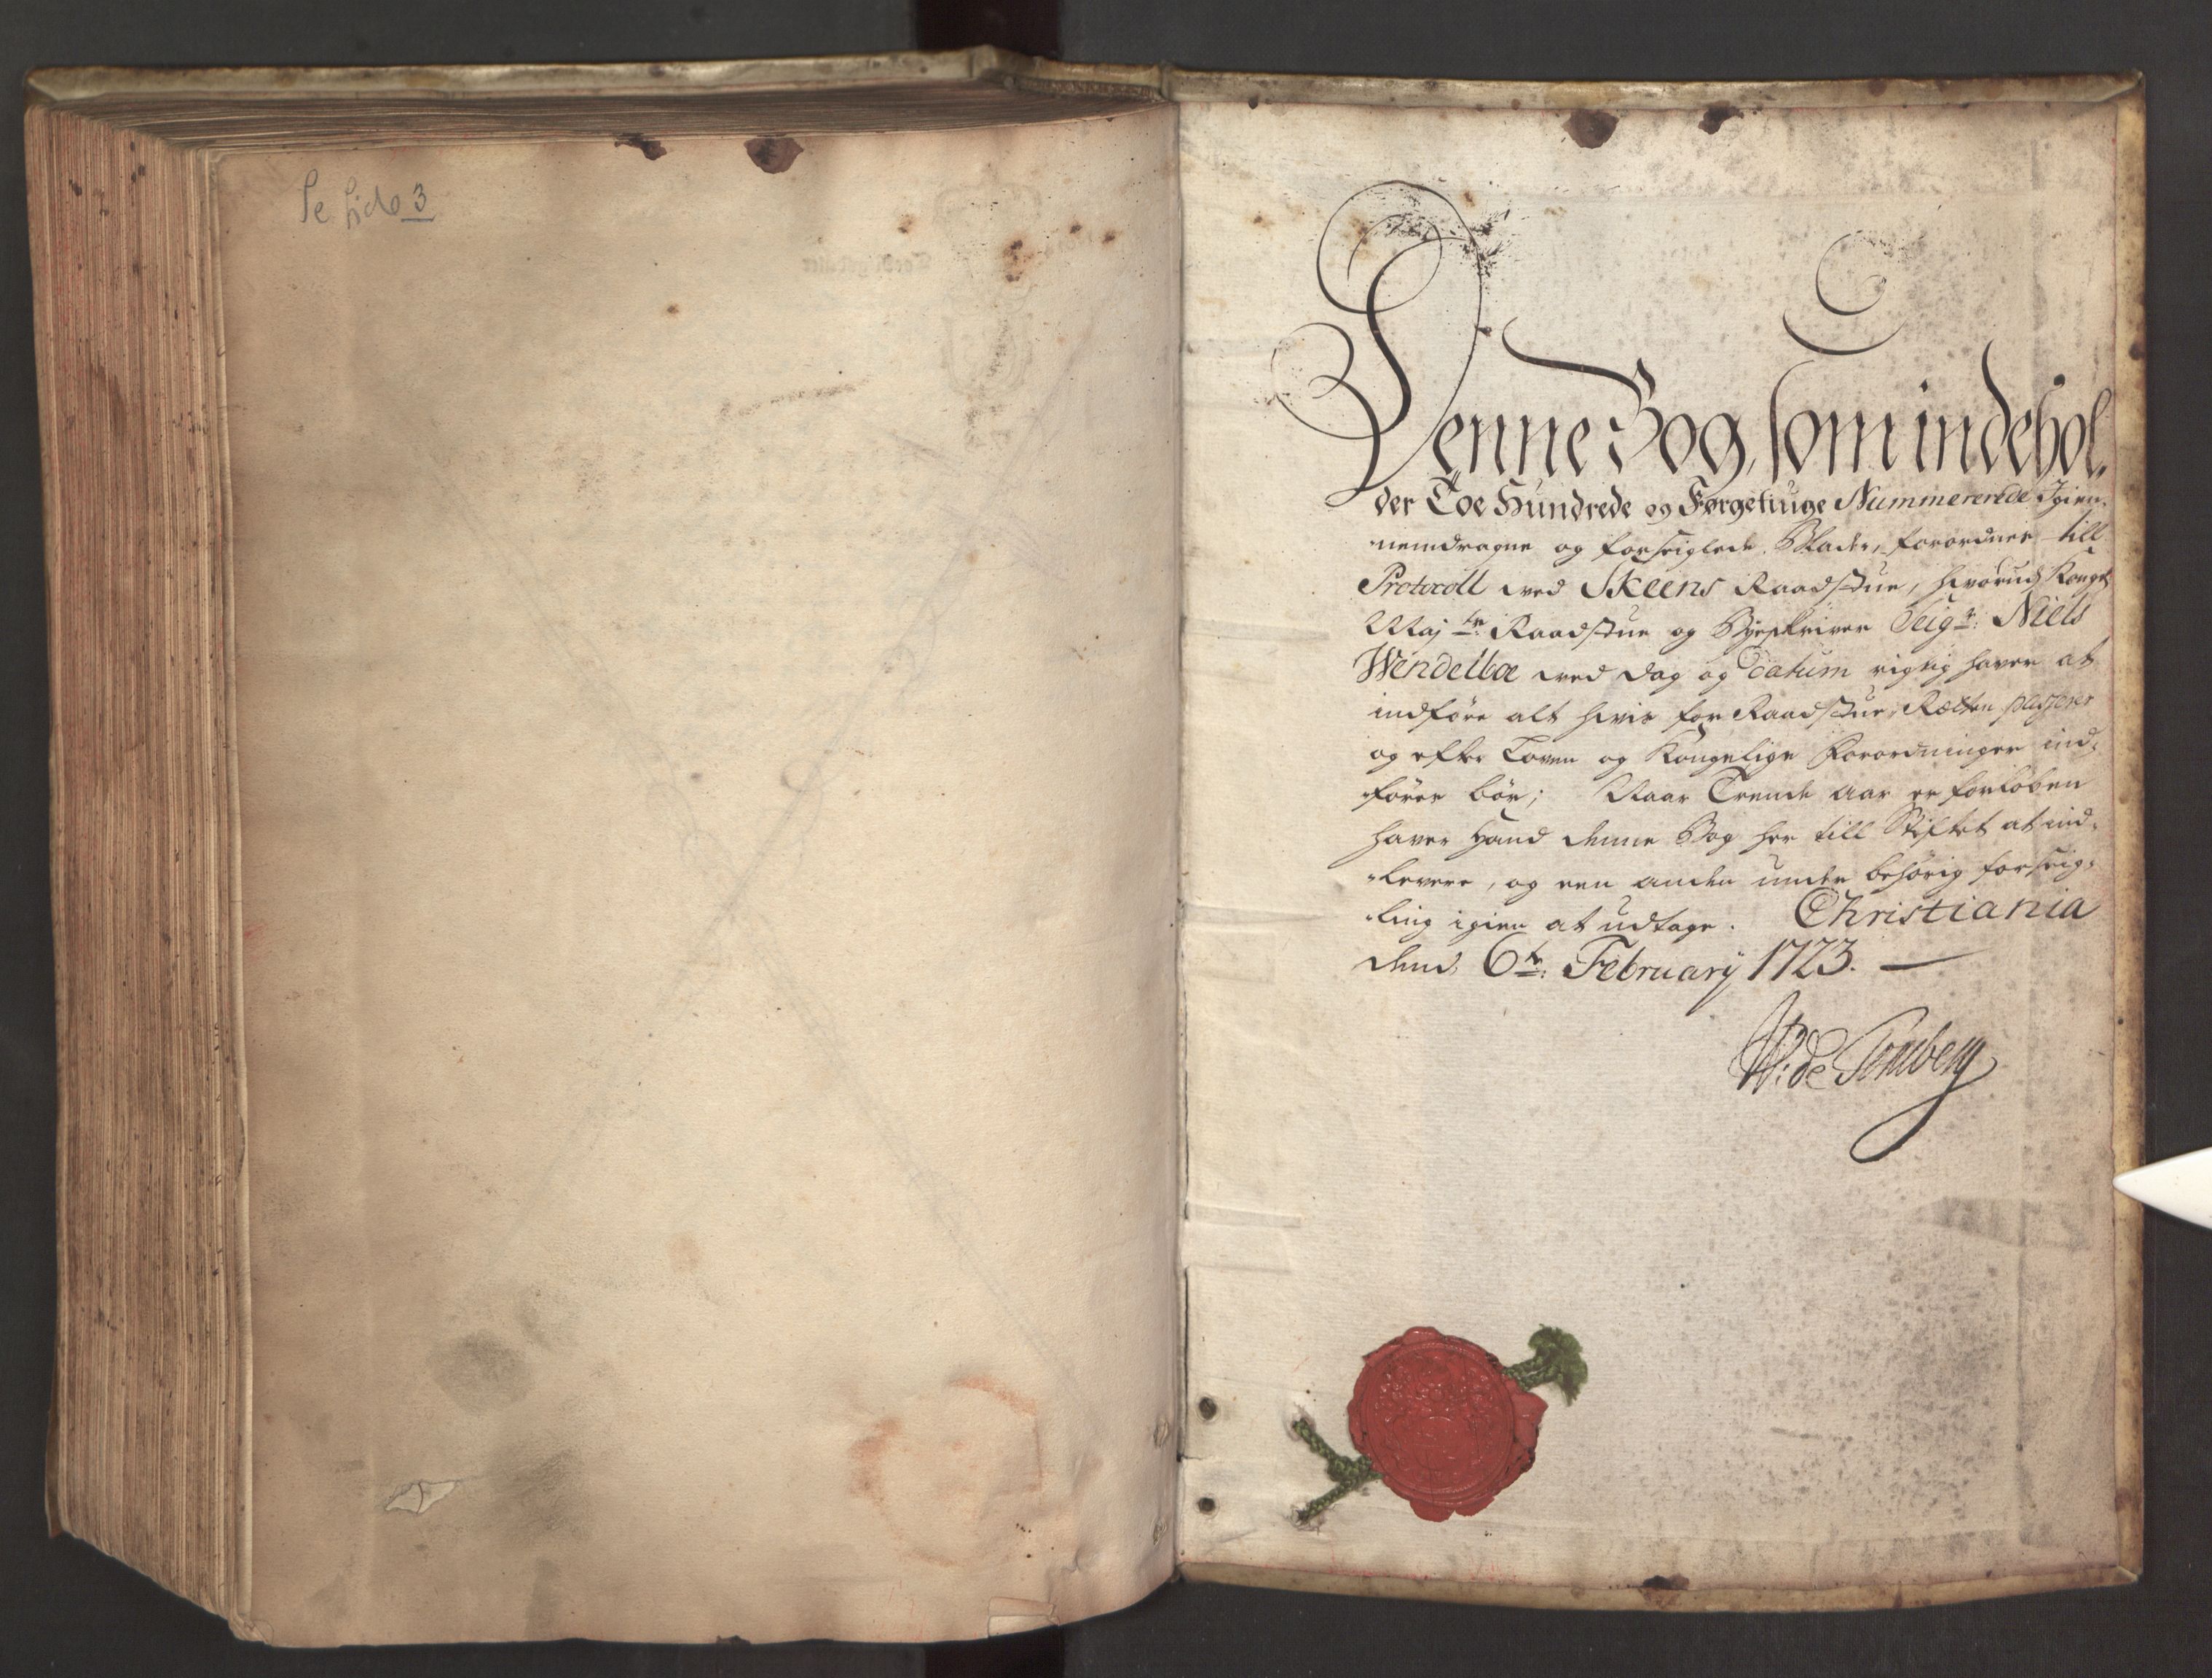 Se Side 3
Denne Bog, som indehol,
der Toe Hundrede og Førgetiuge Nummererede Igien-
nemdragne og forseiglede Blader, forordnes till
Protocoll ved Skeens Raadstue, hvorudj Kongl
Maj.ts Raadstue og Byeskriver Seigr: Niels
Wendelboe ved dag og datum rigtig haver at
indføre alt hvis for Raadstue Rætten passerer
og efter Loven og Kongelige Forordninger ind-
føres bør; Naar Trende Aar er forløben
haver Hand denne Bog her till Stiftet at ind-
levere, og een anden under behørig forseig-
ling igien at udtage. Christiania
dend 6te: February 1723.
W: de Tonsberg